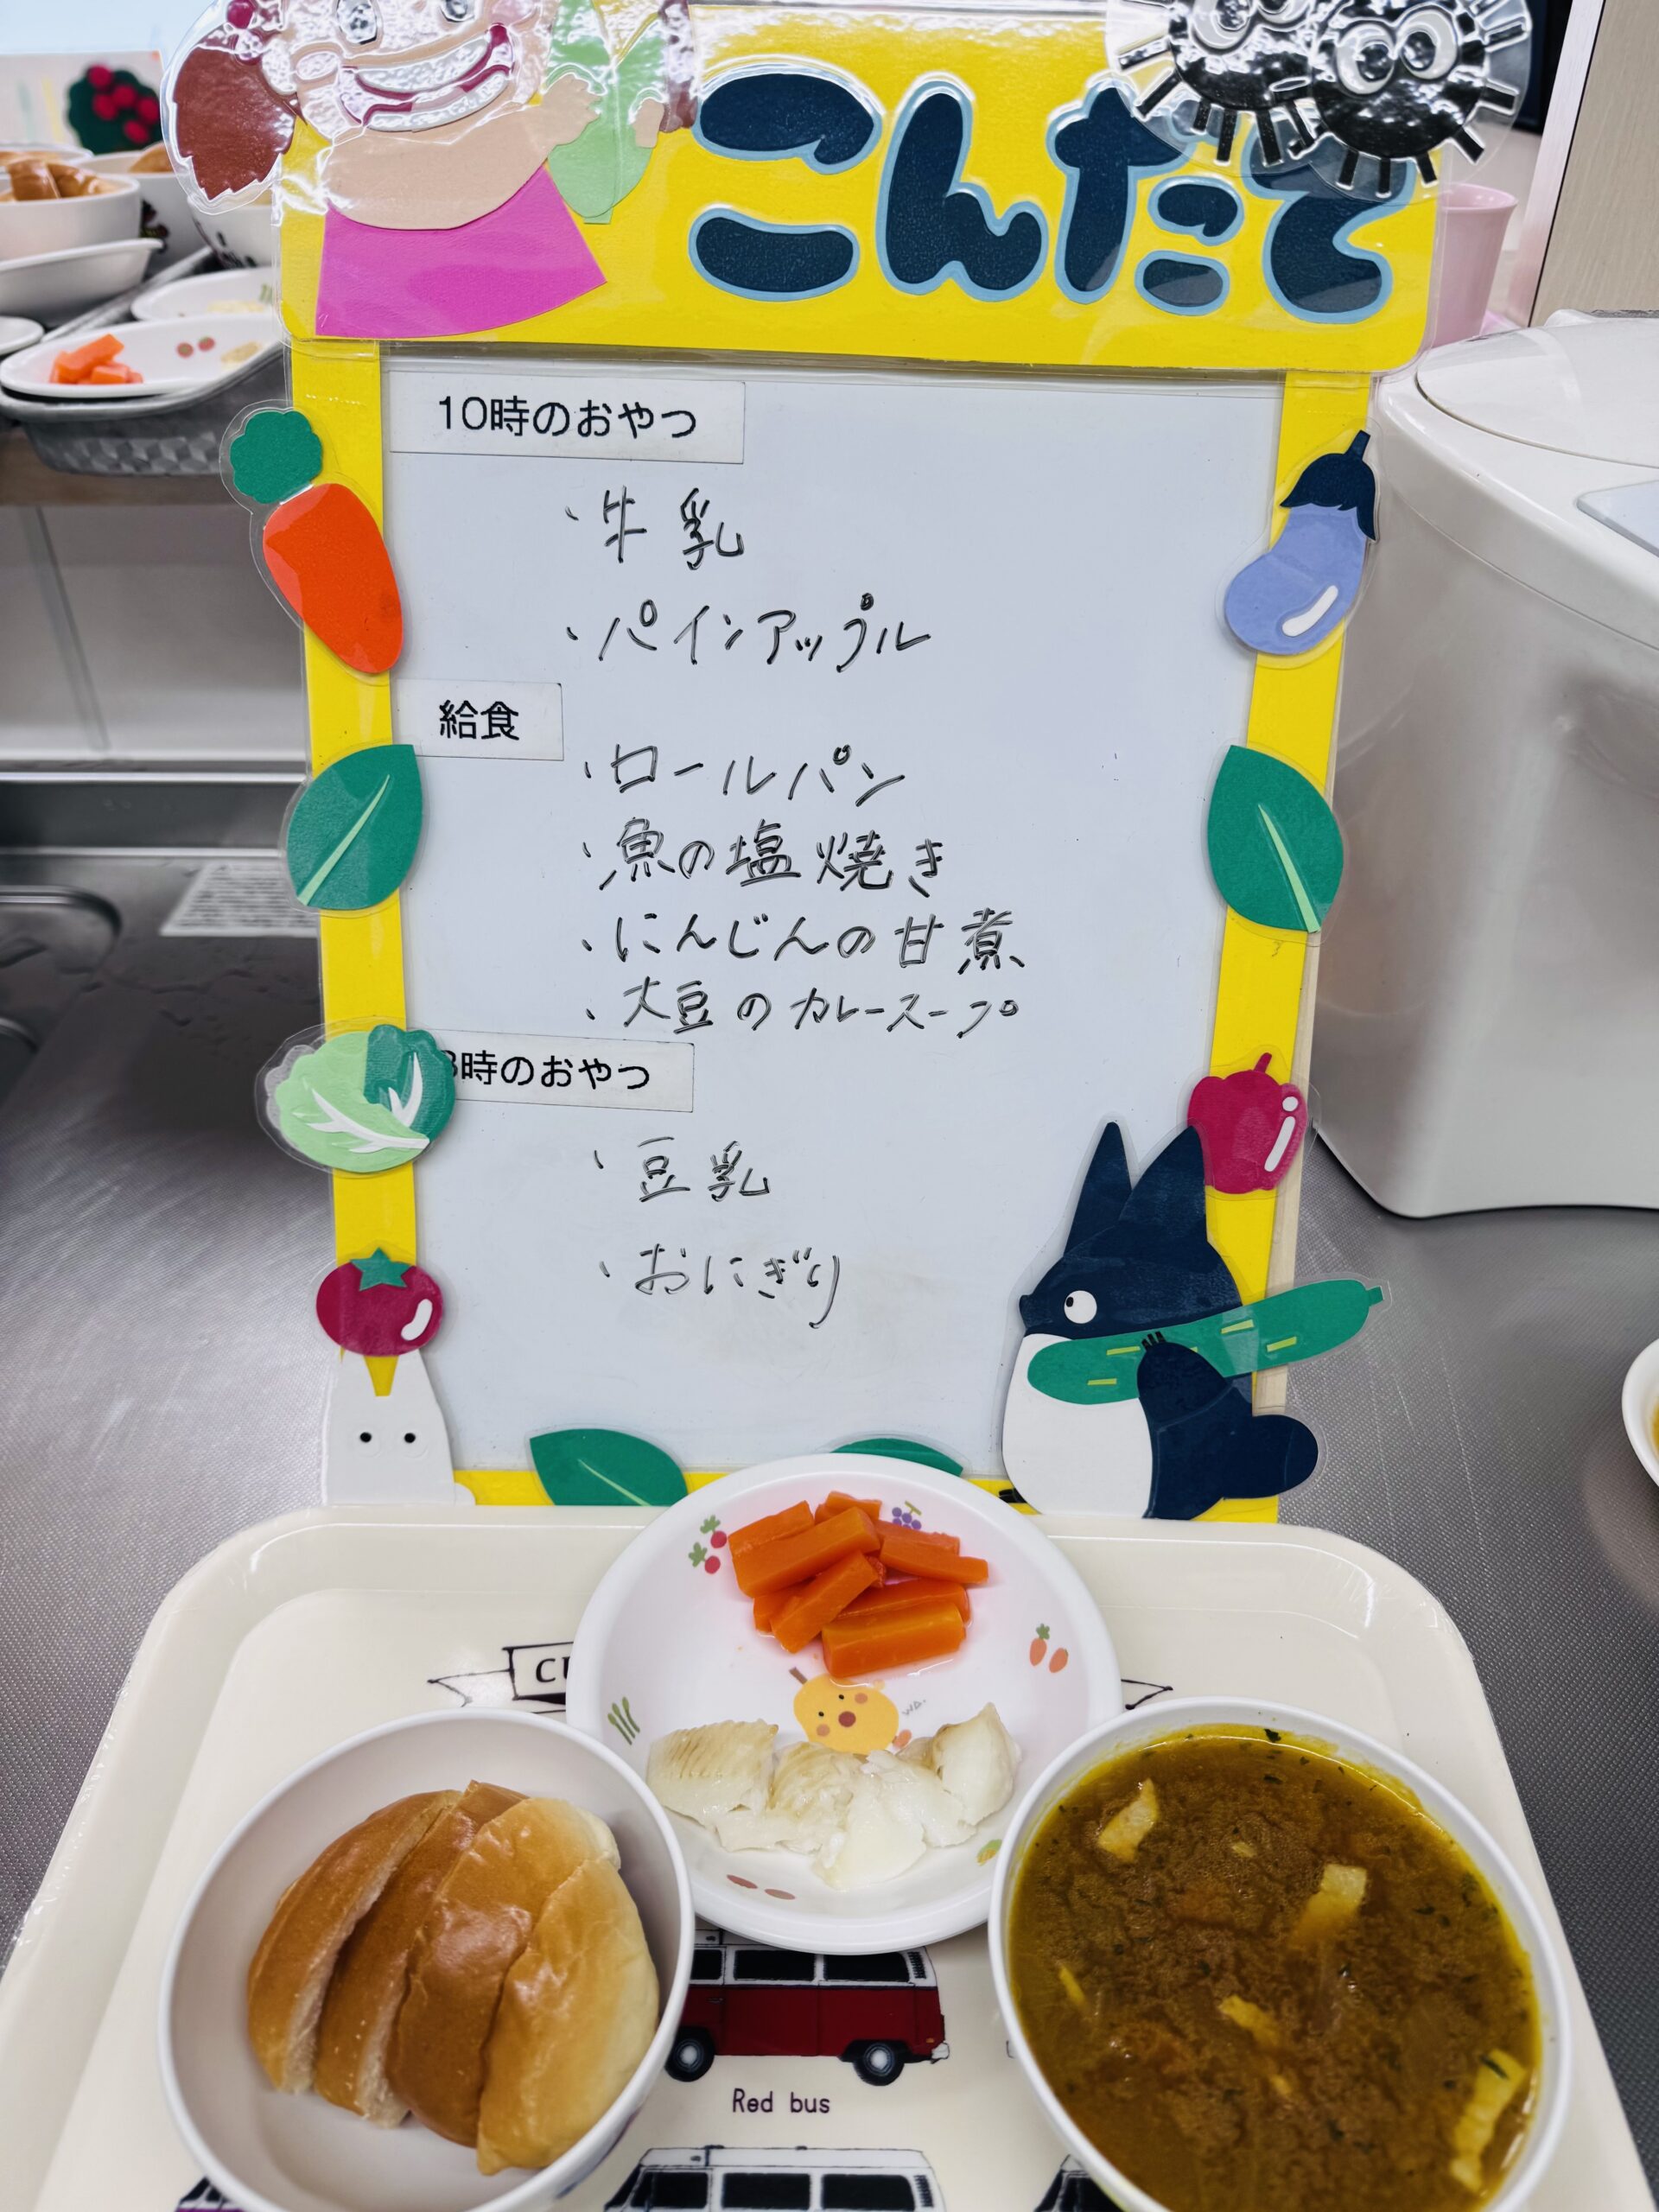 こんだて
10時のおやつ
・牛乳
・パインアップル
給食
・ロールパン
・魚の塩焼き
・にんじんの甘煮
・大豆のカレースープ
3時のおやつ
・豆乳
・おにぎり
Red bus